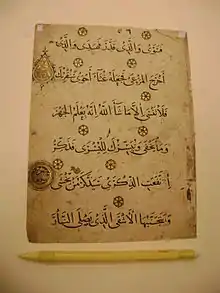 فسوى والذي قدر فهدى والذي
أخرج المرعى فجعله غثاء أحوى سنقرئك
فلا تنسى إلا ما شاء الله إنه يعلم الجهر
وما يخفى ونيسرك لليسرى فذكر
إن نفعت الذكرى سيذكر من يخشى
ويتجنبها الأشقى الذي يصلى النار